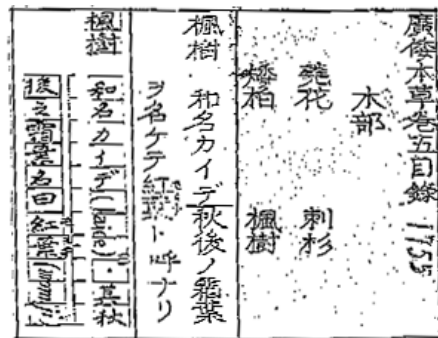 廣倭本草巻五目録 1755
木部
莞花 刺杉
燔柏 楓樹
楓樹 和名カイデ秋後ノ霜葉
ヲ名ケテ紅葉ト呼ナリ
楓樹 和名カイデ(kaide)・其秋
後之霜葉名曰紅葉(momiji)